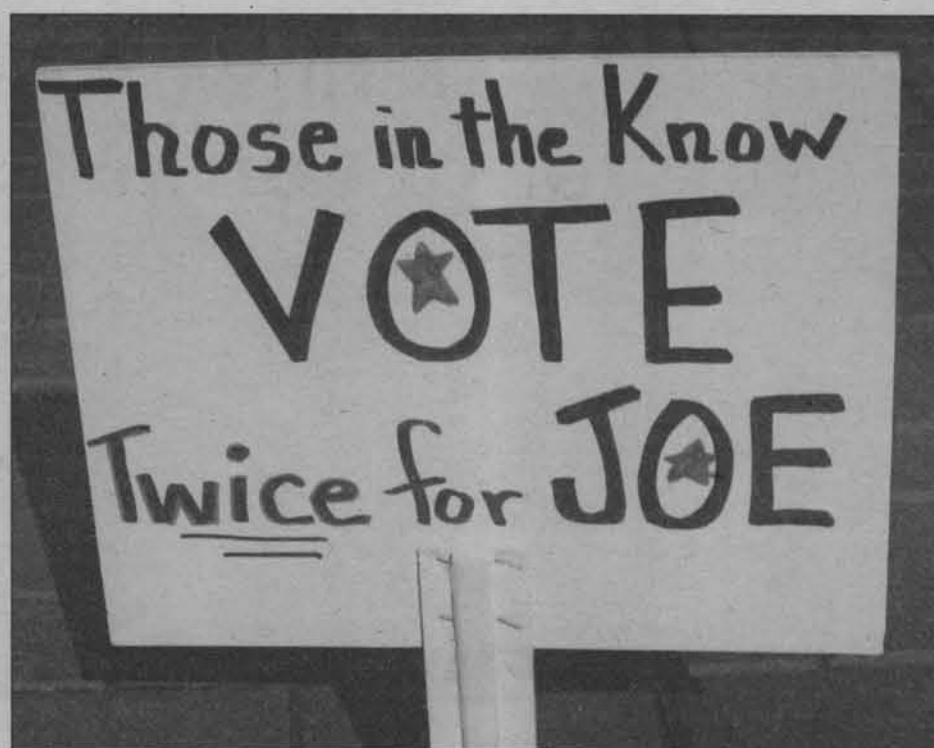 Those in the Know
VOTE
Twice for JOE